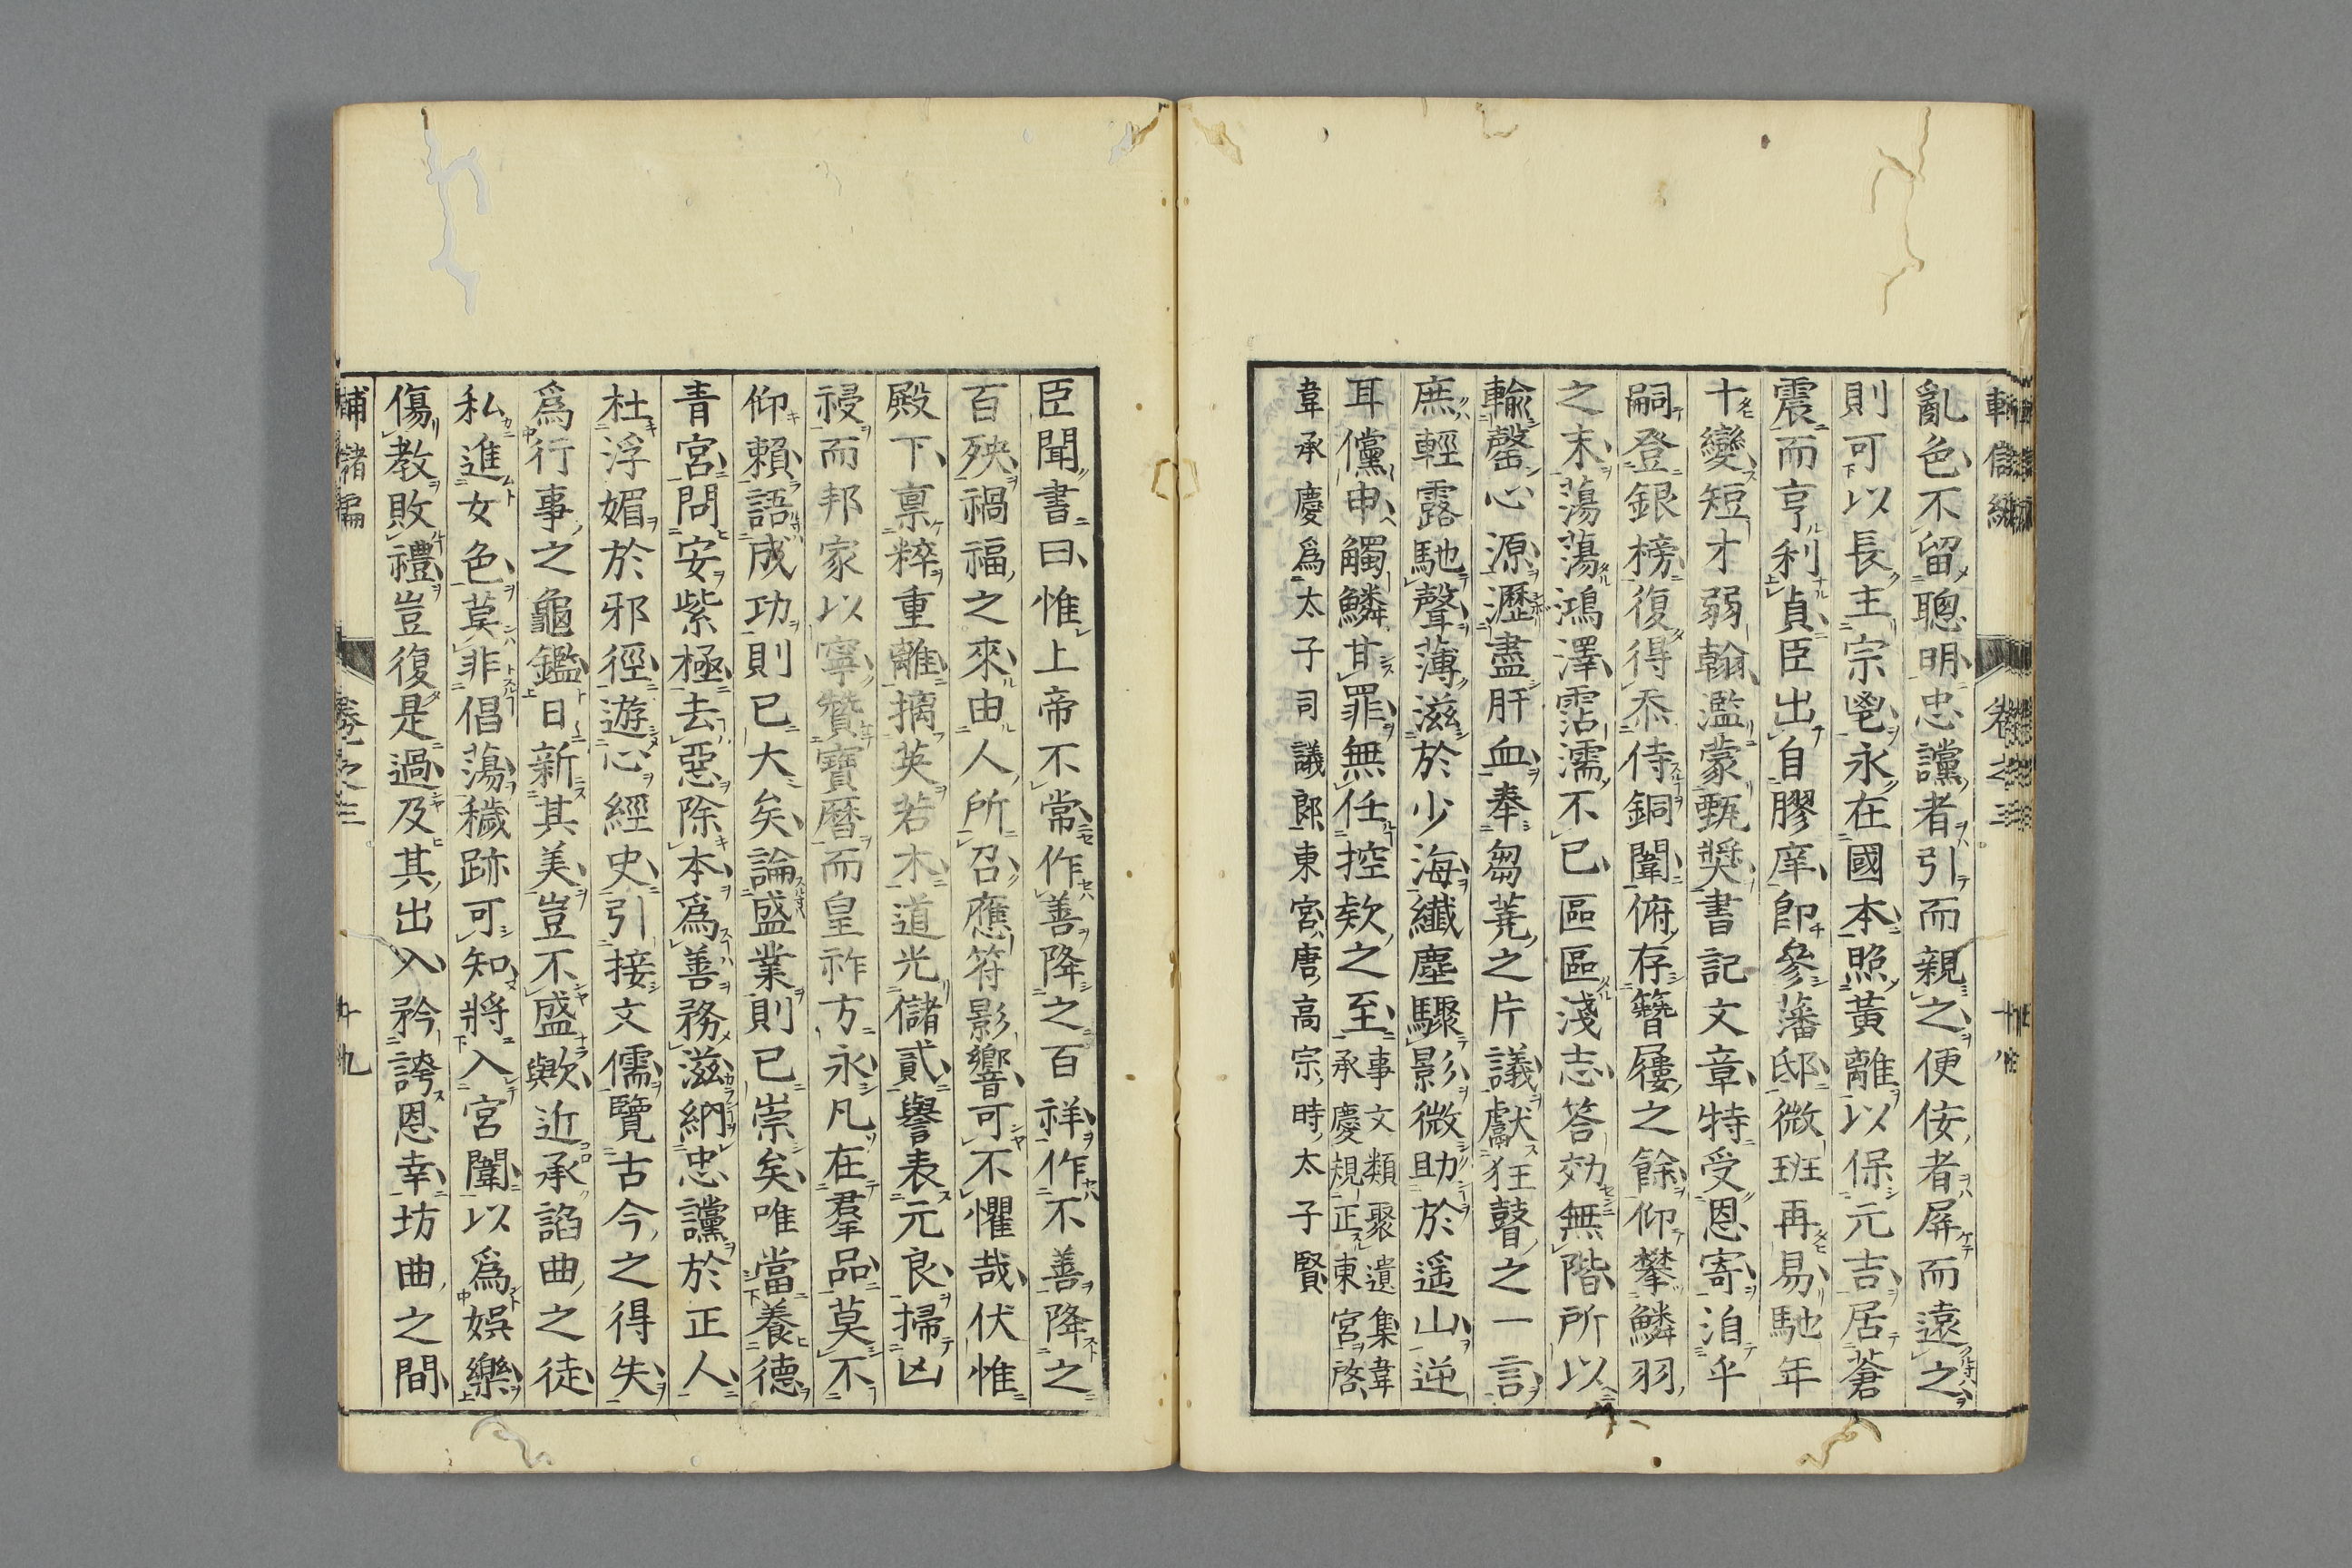 亂色不留聰明忠讜者引而親之便侫者屏而遠之
則可以長主宗鬯永在國本照黃離以保元吉居蒼
震而亨利貞臣出自膠庠卽參藩邸微班再易馳年
十變短才弱翰濫蒙甄奬書記文章特受恩寄洎乎
嗣登銀榜復得忝侍銅闈俯存簪屨之餘仰攀鱗羽
之末蕩蕩鴻澤霑濡不已區區淺志答効無階所以
輸罄心源瀝盡肝血奉芻蕘之片議獻狂瞽之一言
庶輕露馳聲薄滋於少海纖塵驟影微助於遥山逆
耳儻申觸鱗甘罪無任控欵之至
事文類聚遺集韋
承慶規正東宮啓
韋承慶爲太子司議郎東宮唐高宗時太子賢
臣聞書曰惟上帝不常作善降之百祥作不善降之
百殃禍福之來由人所召應符影響可不懼哉伏惟
殿下禀粹重離摛英若木道光儲貳譽表元良掃凶
祲而邦家以寧贊寶曆而皇祚方永凡在羣品莫不
仰賴語成功則已大矣論盛業則已崇矣唯當養德
青宮問安紫極去惡除本爲善務滋納忠讜於正人
杜浮媚於邪徑遊心經史引接文儒覽古今之得失
爲行事之龜鑑日新其美豈不盛歟近承諂曲之徒
私進女色莫非倡蕩穢跡可知將入宮闈以爲娯樂
傷教敗禮豈復是過及其出入矜誇恩幸坊曲之間
輔儲編 卷之三 九十九